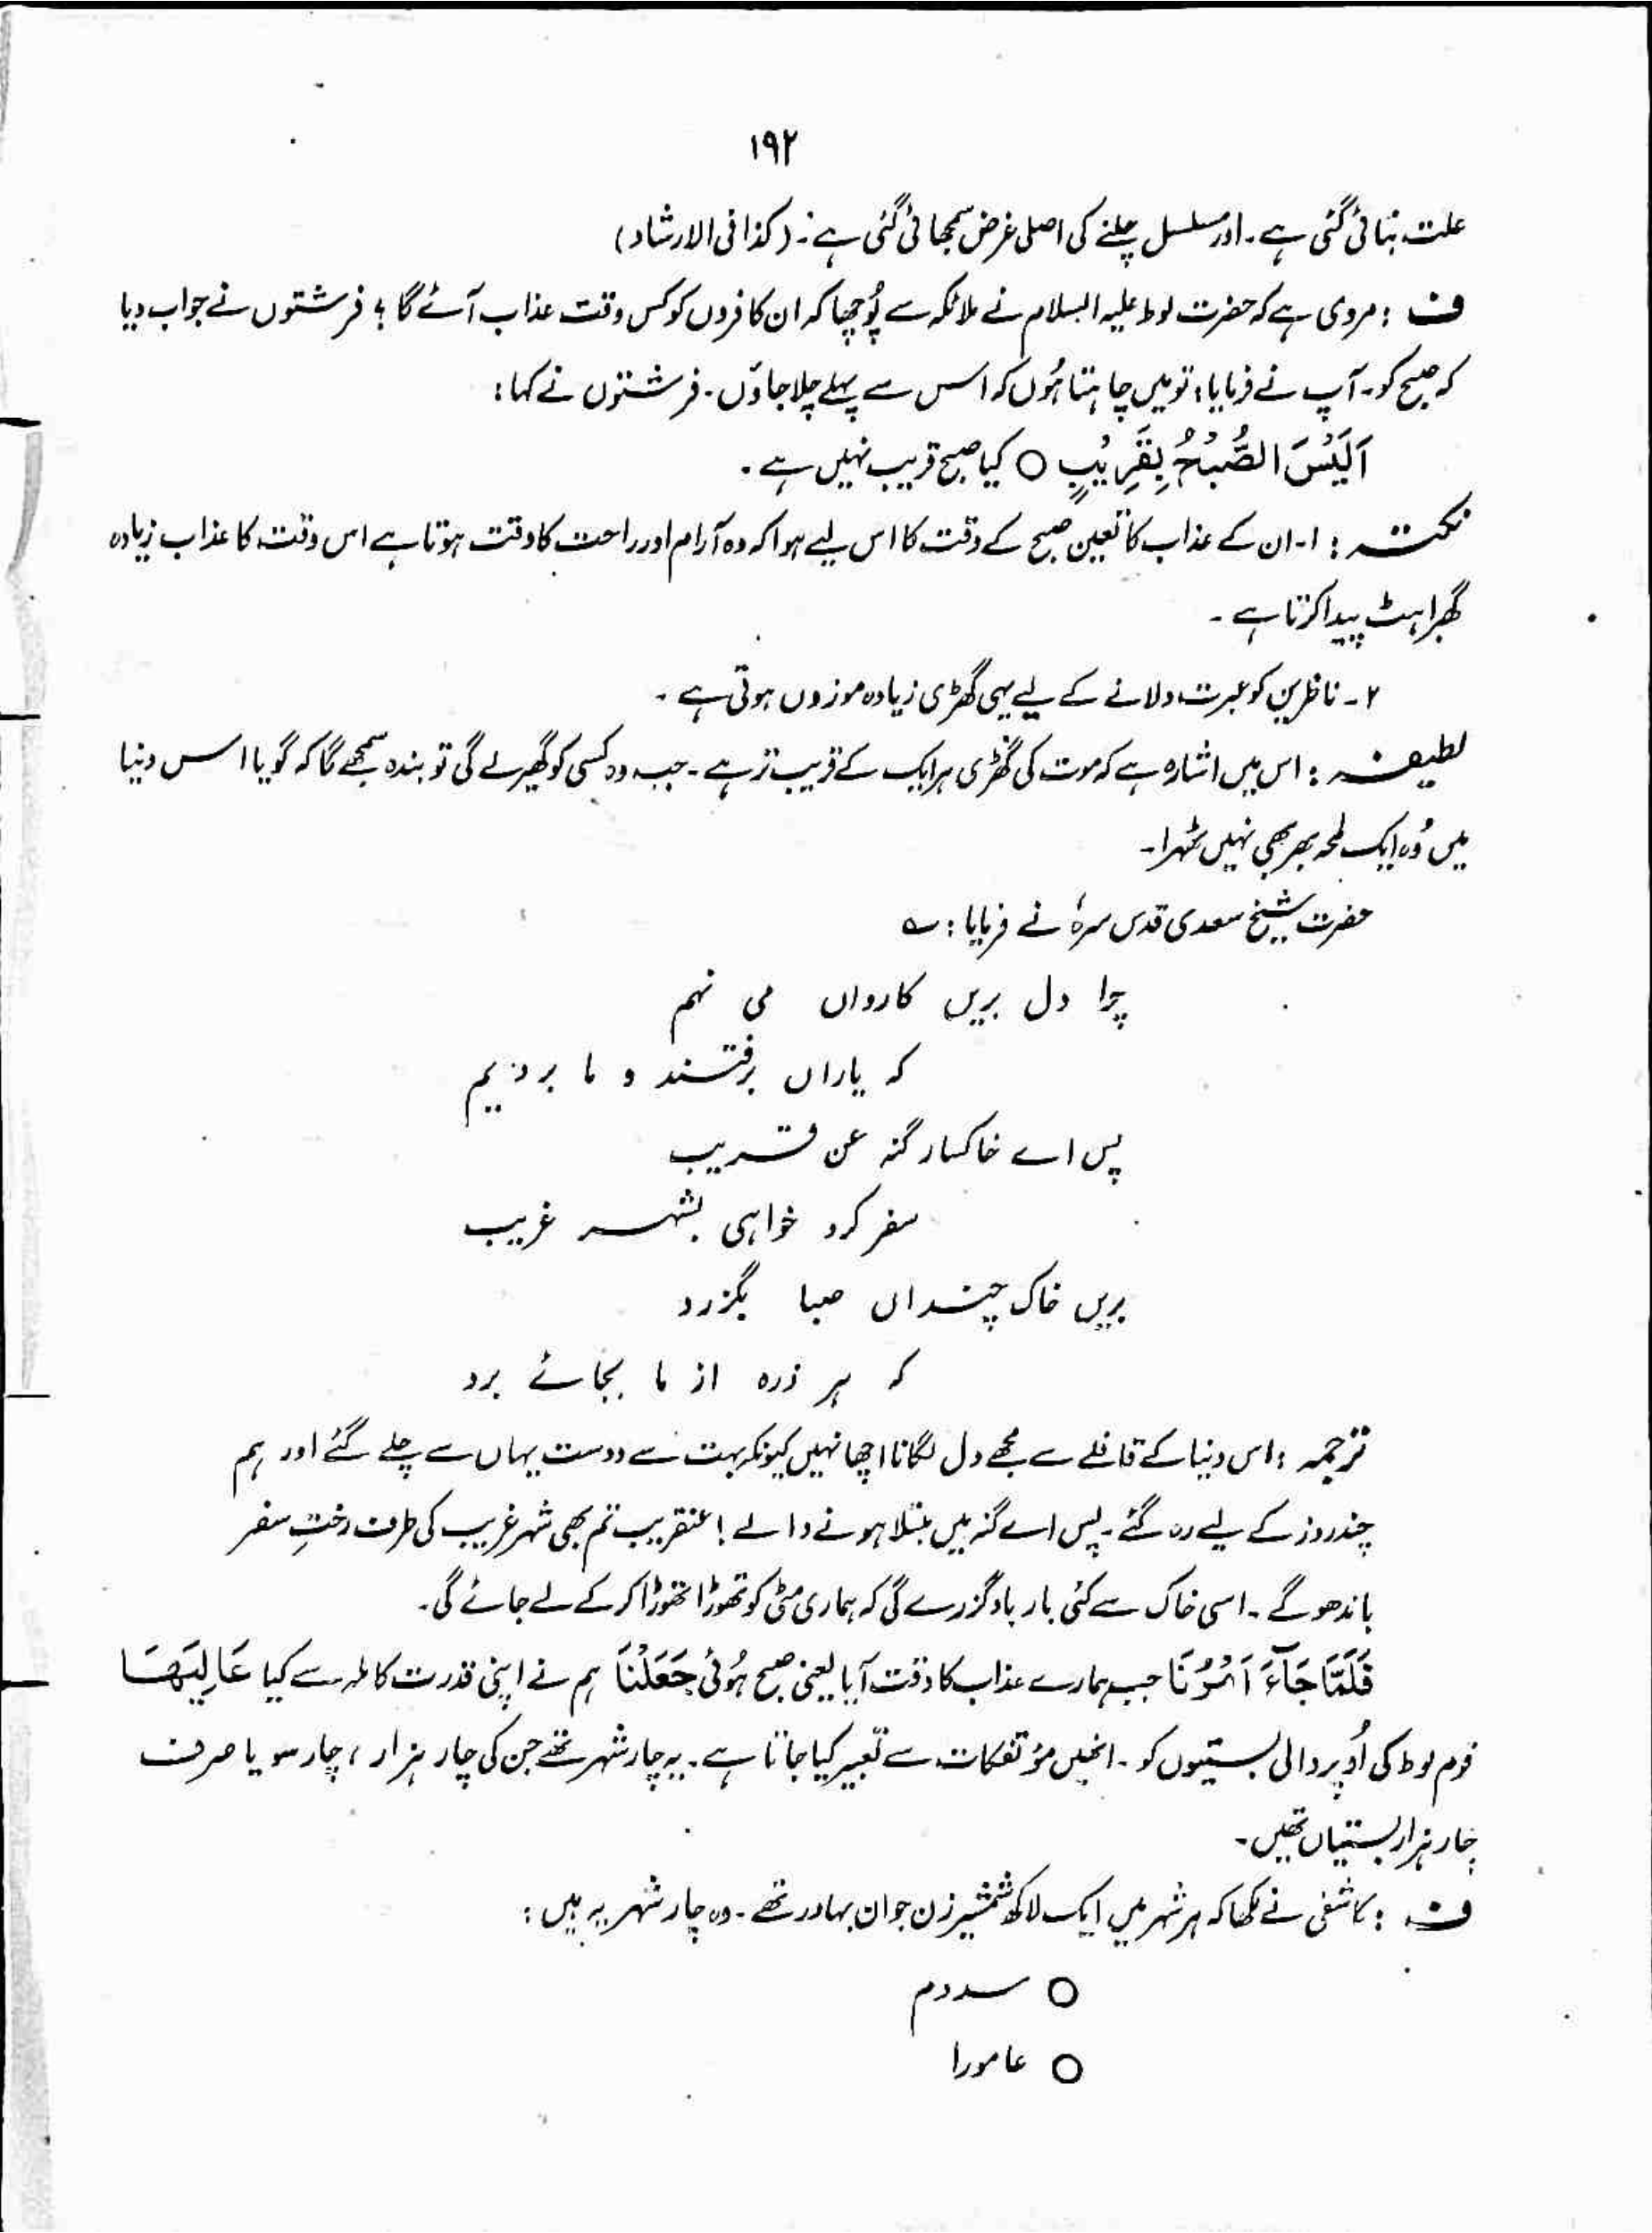 ۱۹۲
علت بتائی گئی ہے۔ اور مسلسل چلنے کی اصلی غرض سمجھائی گئی ہے: (کذا فی الارشاد)
ف : مروی ہے کہ حضرت لوط علیہ السلام نے ملائکہ سے پُوچھا کہ ان کافروں کو کس وقت عذاب آئے گا ؛ فرشتوں نے جواب دیا
کہ صبح کو۔ آپ نے فرمایا: تو میں چاہتا ہُوں کہ اس سے پہلے چلا جاؤں۔ فرشتوں نے کہا :
اَلَیْسَ الصُّبْحُ بِقَرِیْبٍ ○ کیا صبح قریب نہیں ہے۔
نکتہ : ۱۔ ان کے عذاب کا تعین صبح کے وقت کا اس لیے ہوا کہ وہ آرام اور راحت کا وقت ہوتا ہے اس وقت کا عذاب زیادہ
گھبراہٹ پیدا کرتا ہے۔
۲۔ ناظرین کو عبرت دلانے کے لیے یہی گھڑی زیادہ موزوں ہوتی ہے۔
لطیفہ : اس میں اشارہ ہے کہ موت کی گھڑی ہر ایک کے قریب تر ہے۔ جب وہ کسی کو گھیر لے گی تو بندہ سمجھے گا کہ گویا اس دنیا
میں وُہ ایک لمحہ بھر بھی نہیں ٹھہرا۔
حضرت شیخ سعدی قدس سرہٗ نے فرمایا : ؎
چرا دل بریں کارواں می نہم
کہ یاراں برفتند و ما بر
پس اے خاکسار گنہ عن قریب
سفر کرد خواہی بشہر غریب
بریں خاک چنداں صبا بگزرد
کہ ہر ذرہ از ما بجائے برد
ترجمہ : اس دنیا کے قافلے سے مجھے دل لگانا اچھا نہیں کیونکہ بہت سے دوست یہاں سے چلے گئے اور ہم
چند روز کے لیے رہ گئے۔ پس اے گنہ میں مبتلا ہونے والے ! عنقریب تم بھی شہر غریب کی طرف رختِ سفر
باندھو گے۔ اسی خاک سے کئی بار باد گزرے گی کہ ہماری مٹی کو تھوڑا تھوڑا کر کے لے جائے گی۔
فَلَمَّا جَآءَ اَمْرُنَا جب ہمارے عذاب کا وقت آیا یعنی صبح ہُوئی جَعَلْنَا ہم نے اپنی قدرت کاملہ سے کیا عَالِیَہَا
قوم لوط کی اُوپر والی بستیوں کو۔ انھیں مؤتفکات سے تعبیر کیا جاتا ہے۔ یہ چار شہر تھے جن کی چار ہزار ، چار سو یا صرف
چار ہزار بستیاں تھیں۔
ف : کاشفی نے لکھا کہ ہر شہر میں ایک لاکھ شمشیر زن جوان بہادر تھے۔ وہ چار شہر یہ ہیں :
○ سدوم
○ عامورا